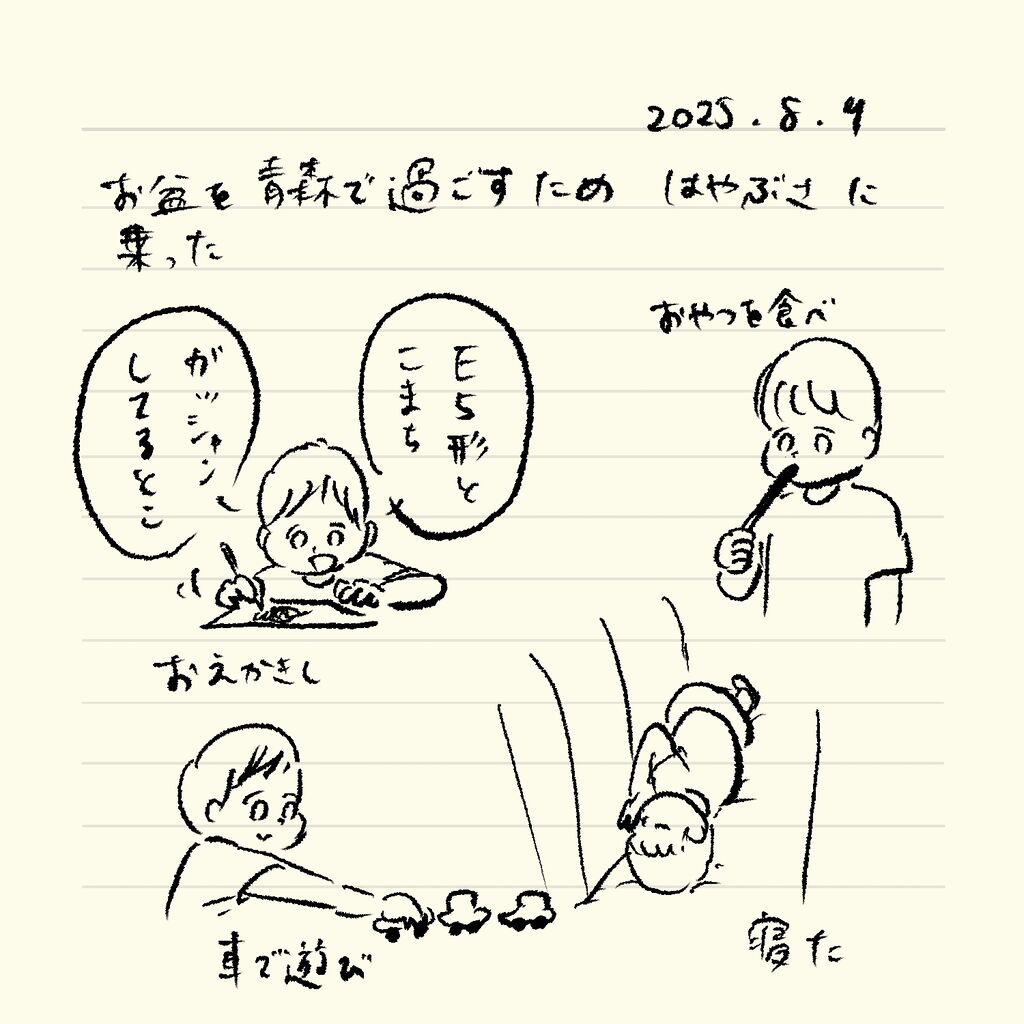 2025.8.9
お盆を青森で過ごすため はやぶさに
乗った
おやつを食べ
E5形と
こまち
が
ガッシャン
してるとこ
おえかきし
車で遊び
寝た